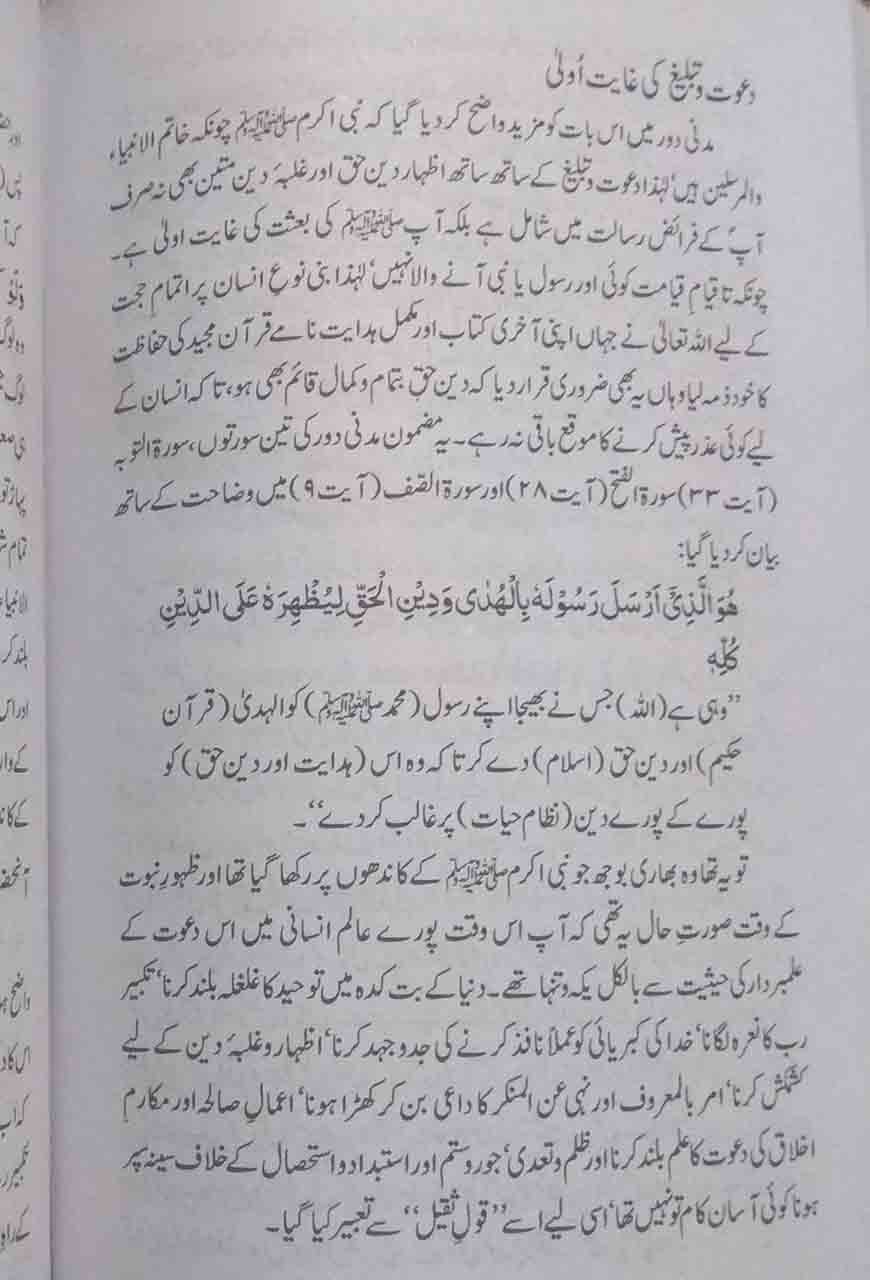 دعوت و تبلیغ کی غایت اُولیٰ
مدنی دور میں اس بات کو مزید واضح کر دیا گیا کہ نبی اکرم ﷺ چونکہ خاتم الانبیاء
والمرسلین ہیں’ لہٰذا دعوت و تبلیغ کے ساتھ ساتھ اظہار دین حق اور غلبۂ دین متین بھی نہ صرف
آپؐ کے فرائض رسالت میں شامل ہے بلکہ آپ ﷺ کی بعثت کی غایت اولیٰ ہے۔
چونکہ تا قیامِ قیامت کوئی اور رسول یا نبی آنے والا نہیں’ لہٰذا بنی نوع انسان پر اتمام حجت
کے لیے اللہ تعالیٰ نے جہاں اپنی آخری کتاب اور مکمل ہدایت نامے قرآن مجید کی حفاظت
کا خود ذمہ لیا وہاں یہ بھی ضروری قرار دیا کہ دین حق بتمام و کمال قائم بھی ہو، تا کہ انسان کے
لیے کوئی عذر پیش کرنے کا موقع باقی نہ رہے۔ یہ مضمون مدنی دور کی تین سورتوں، سورۃ التوبہ
(آیت ۳۳) سورۃ الفتح (آیت ۲۸) اور سورۃ الصّف (آیت ۹) میں وضاحت کے ساتھ
بیان کر دیا گیا:
هُوَ الَّذِیْۤ اَرْسَلَ رَسُوْلَهٗ بِالْهُدٰی وَدِیْنِ الْحَقِّ لِیُظْهِرَهٗ عَلَی الدِّیْنِ
كُلِّهٖ
’’وہی ہے (اللہ) جس نے بھیجا اپنے رسول (محمد ﷺ) کو الہدیٰ (قرآن
حکیم) اور دین حق (اسلام) دے کر تا کہ وہ اس (ہدایت اور دین حق) کو
پورے کے پورے دین (نظام حیات) پر غالب کر دے‘‘۔
تو یہ تھا وہ بھاری بوجھ جو نبی اکرم ﷺ کے کاندھوں پر رکھا گیا تھا اور ظہورِ نبوت
کے وقت صورتِ حال یہ تھی کہ آپ اس وقت پورے عالم انسانی میں اس دعوت کے
علمبردار کی حیثیت سے بالکل یکہ و تنہا تھے۔ دنیا کے بت کدہ میں توحید کا غلغلہ بلند کرنا’ تکبیر
رب کا نعرہ لگانا’ خدا کی کبریائی کو عملاً نافذ کرنے کی جدوجہد کرنا’ اظہار و غلبۂ دین کے لیے
کشمکش کرنا’ امر بالمعروف اور نہی عن المنکر کا داعی بن کر کھڑا ہونا’ اعمالِ صالحہ اور مکارم
اخلاق کی دعوت کا علم بلند کرنا اور ظلم و تعدی’ جور و ستم اور استبداد و استحصال کے خلاف سینہ سپر
ہونا کوئی آسان کام تو نہیں تھا’ اسی لیے اسے ’’قولِ ثقیل‘‘ سے تعبیر کیا گیا۔